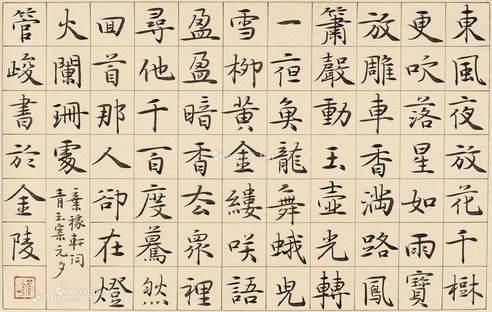 東風夜放花千樹
更吹落星如雨寶
放雕車香滿路鳳
簫聲動玉壺光轉
一夜魚龍舞蛾兒
雪柳黃金縷咲語
盈盈暗香去眾裡
尋他千百度驀然
回首那人卻在燈
火闌珊處
辛稼軒詞
青玉案元夕
管峻書於金陵